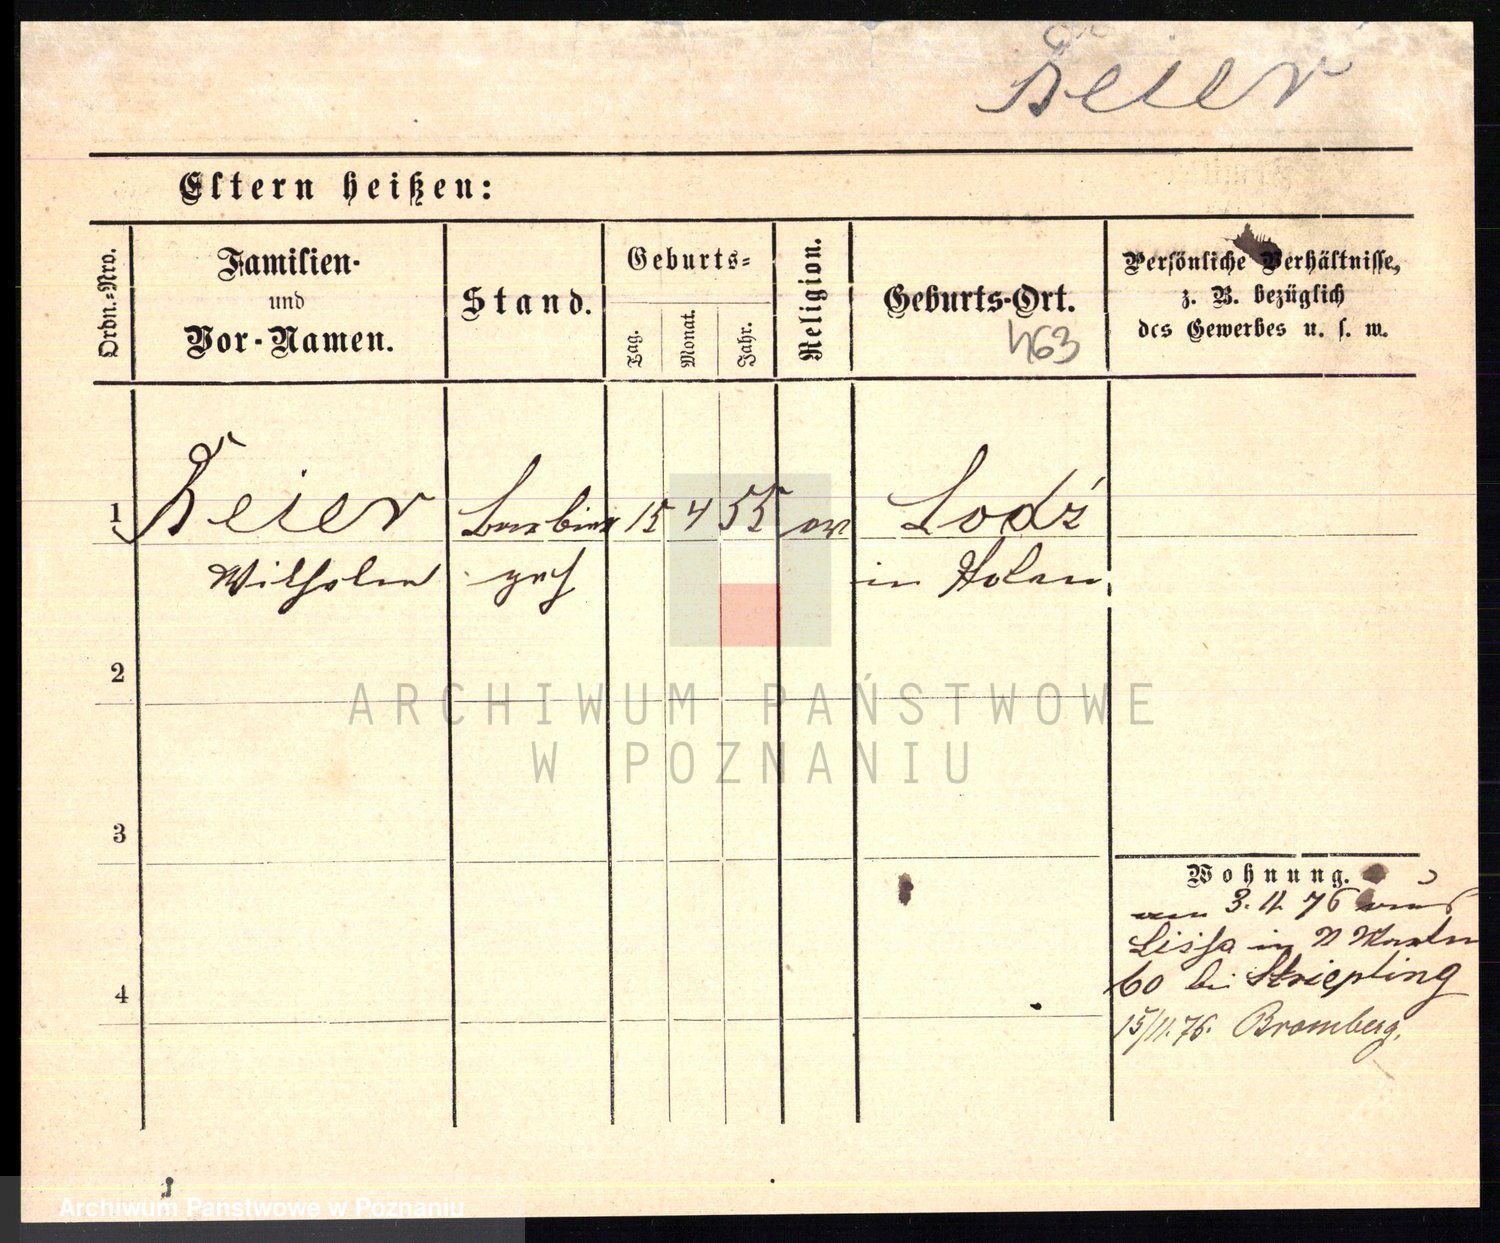 Beier
Eltern heißen:
Ordn.-Nro.
Familien-
und
Vor-Namen.
Stand.
Geburts-
Tag.
Monat.
Jahr.
Religion.
Geburts-Ort.
463
Persönliche Verhältnisse,
z. B. bezüglich
des Gewerbes u. s. w.
1
Beier
Barbier
15
4
55
ev
Lodź
Wilhelm
geh
in Polen
2
ARCHIWUM PAŃSTWOWE
W POZNANIU
3
Wohnung.
3. 4. 76 aus
Lissa in
60 bei Striepling
15/11.76. Bromberg.
4
Archiwum Państwowe w Poznaniu